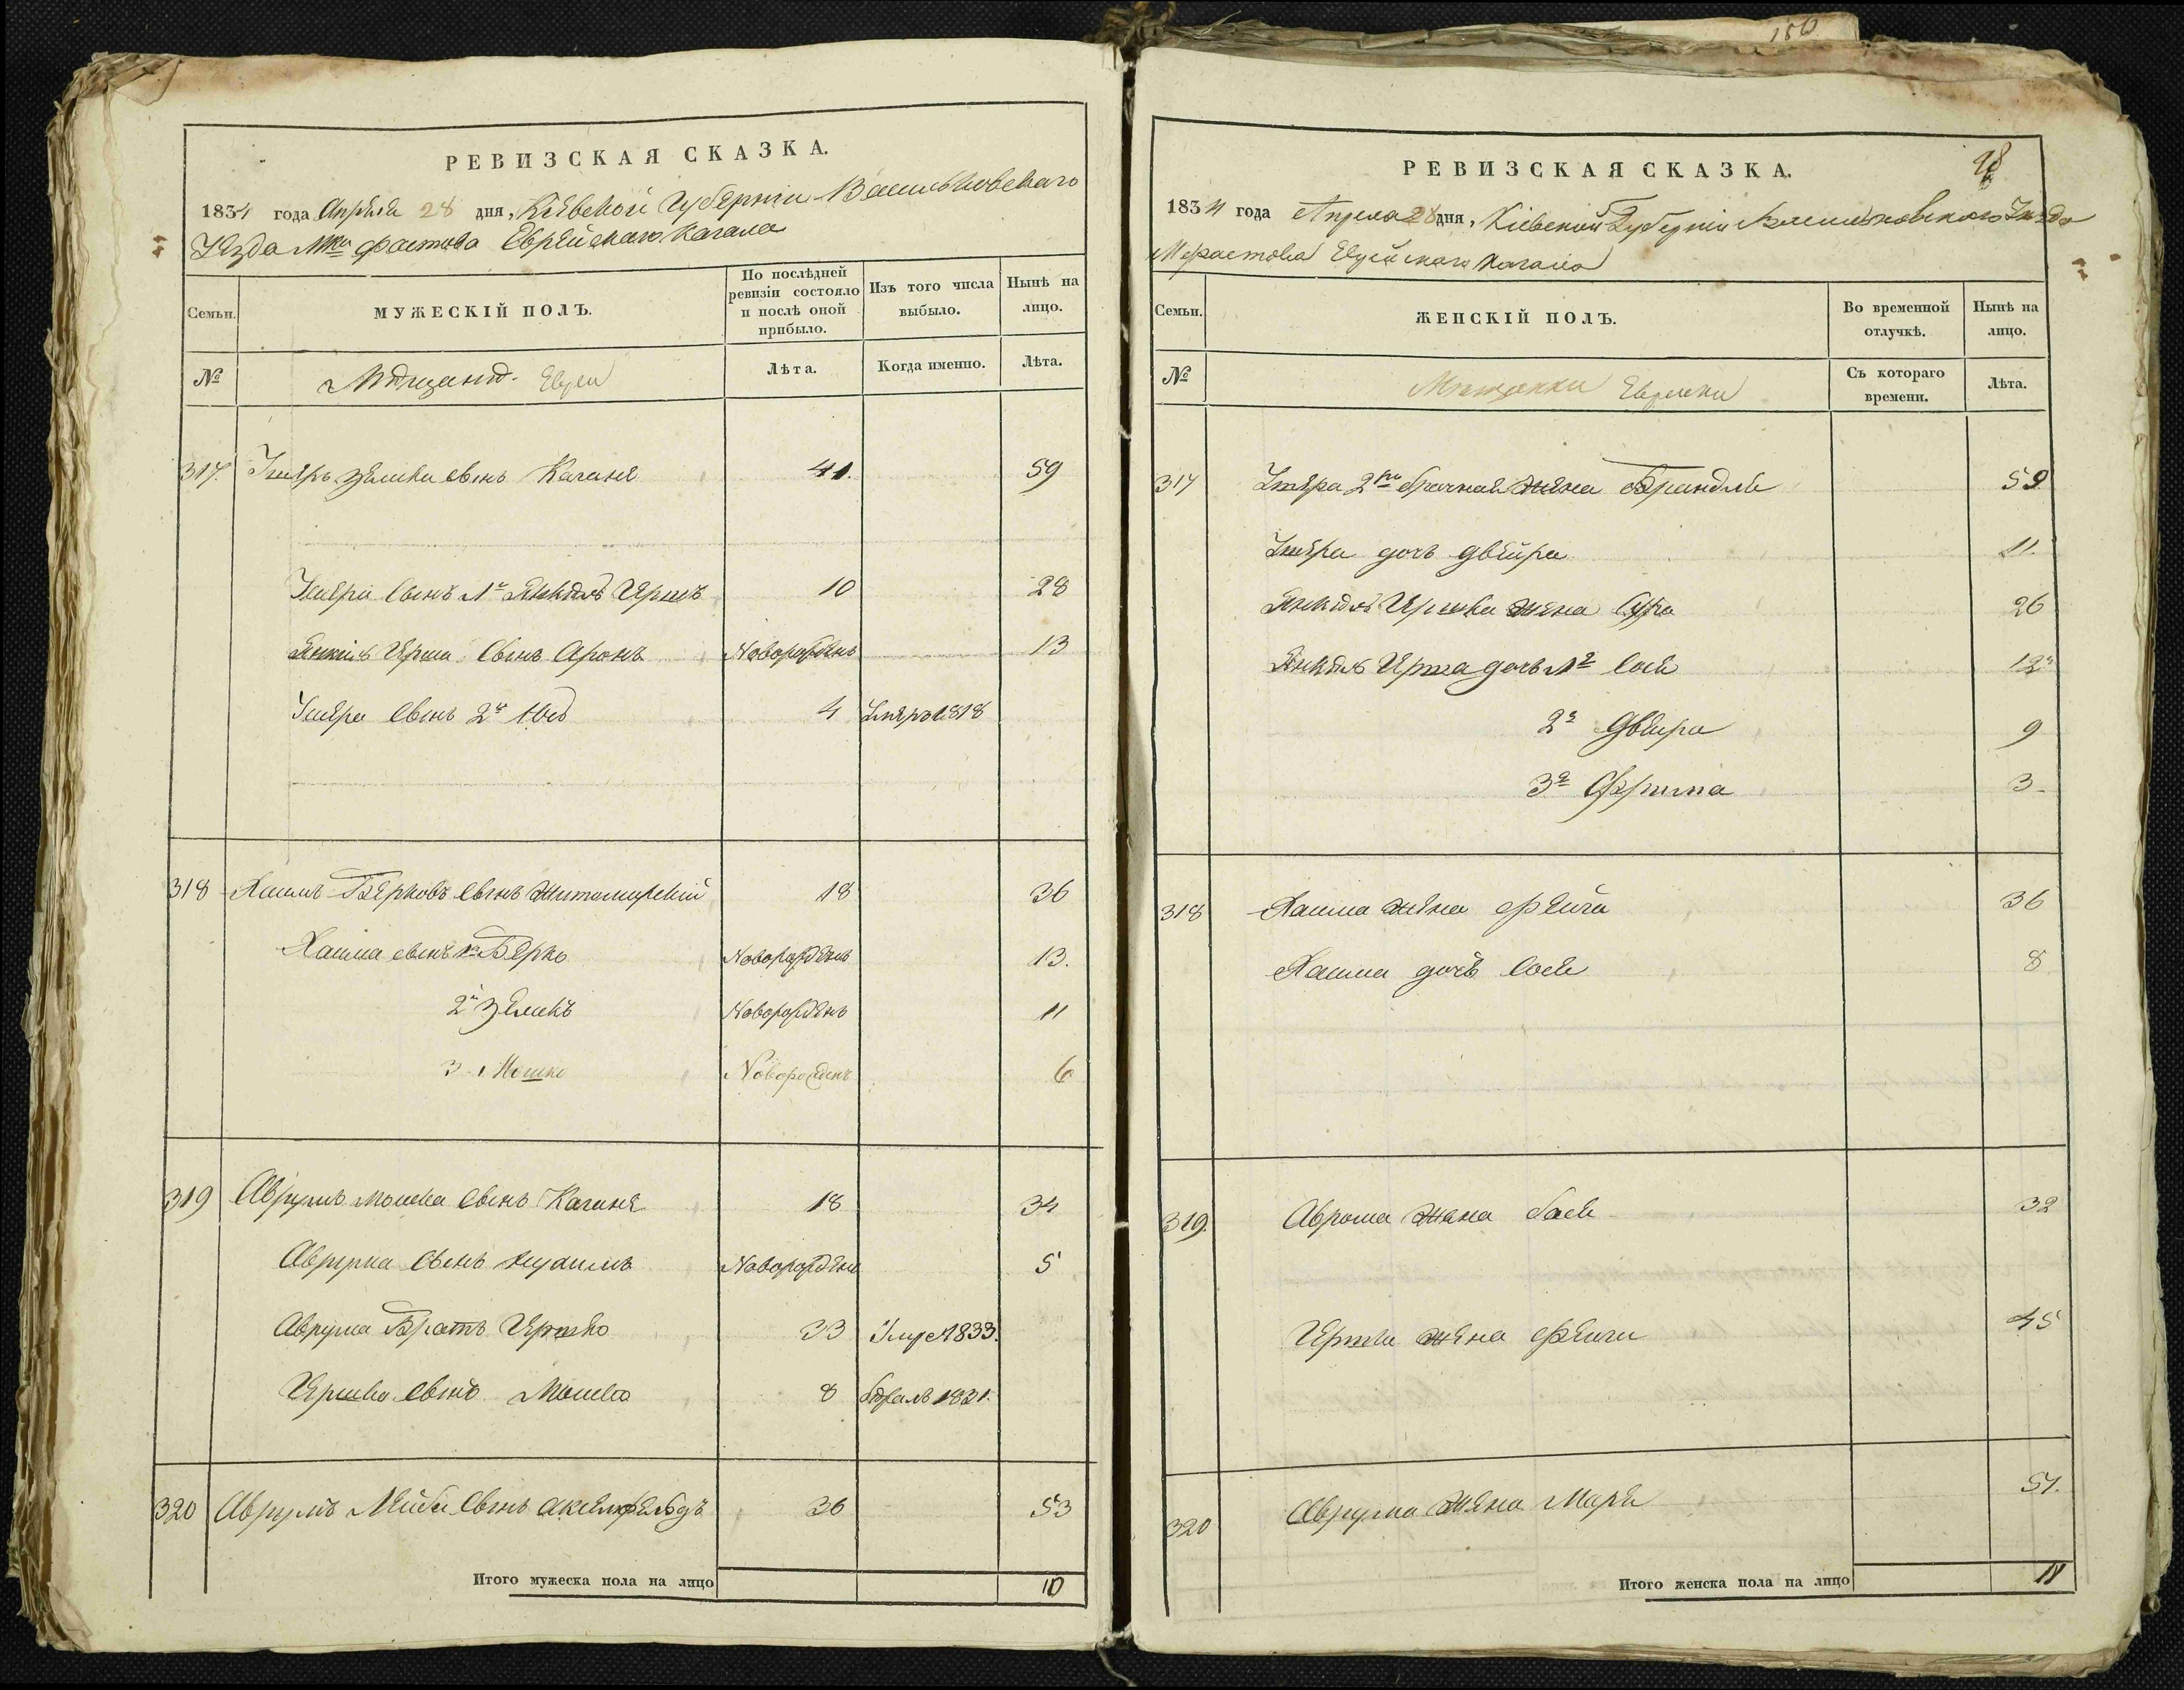 150
РЕВИЗСКАЯ СКАЗКА.
1834 года Апреля 28 дня, Киевской Губернии Васильковского
Уезда Мка Фастова Еврейского Кагала
Семьи.
МУЖЕСКІЙ ПОЛЪ.
По послѣдней ревизіи состояло и послѣ оной прибыло.
Изъ того числа выбыло.
Нынѣ на лицо.
№
Мѣщане Евреи
Лѣта.
Когда именно.
Лѣта.
317. Зелика сынъ Кагане 41. 59
сынъ 1й Янкель Гершъ 10 28
Янкель Герша сынъ Аронъ Новорожденъ 13
сынъ 2й 4 1818
318 Хаимъ Берковъ сынъ Житомирскій 18 36
Хаима сынъ 1й Берко Новорожденъ 13.
2й Зеликъ Новорожденъ 11
3 Мошко Новорожденъ 6
319 Аврумъ Мошка сынъ Кагане 18 34
Аврума сынъ Новорожденъ 5
Аврума Братъ Гершко 33 Умре 1833.
Гершка сынъ Мошко 8 1831.
320 Аврумъ Лейба сынъ Аксельфельдъ 36 53
Итого мужеска пола на лицо 10
РЕВИЗСКАЯ СКАЗКА.
1834 года Апреля 28 дня, Кіевской Губерніи Васильковского Уезда
М Фастова Еврейского Кагала
Семьи.
ЖЕНСКІЙ ПОЛЪ.
Во временной отлучкѣ.
Нынѣ на лицо.
№
Мѣщанки Еврейки
Съ котораго времени.
Лѣта.
317 2го брачная жена Брандля 59
дочь Двейра 11.
Янкель Гершка жена Сура 26
Янкель Герша дочь 1я Сося 12
2я Двейра 9
3я Фрима 3
318 Хаима жена Фейга 36
Хаима дочь Сося 8
319. Аврома жена Бася 32
Гершка жена Фейга 45
320 Аврума жена Маря 51.
Итого женска пола на лицо 11